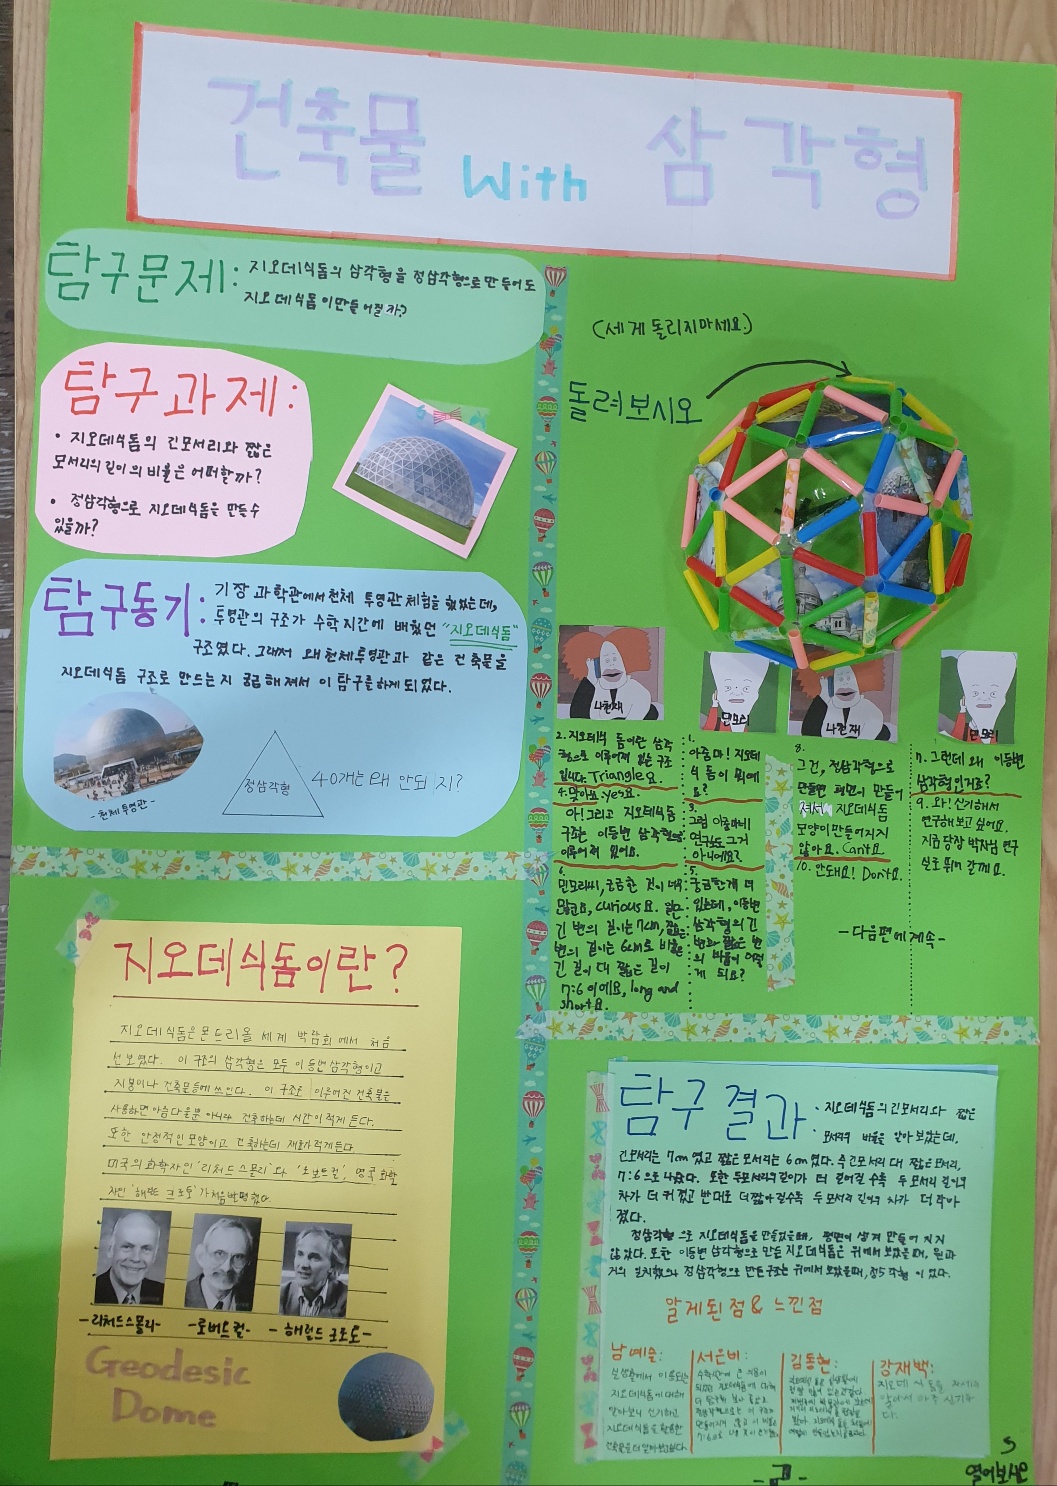 건축물 With 삼각형
탐구문제:
지오데식돔의 삼각형을 정삼각형으로 만들어도
지오데식돔이 만들어질까?
탐구과제:
• 지오데식돔의 긴모서리와 짧은
모서리의 길이의 비율은 어떠할까?
• 정삼각형으로 지오데식돔을 만들수
있을까?
탐구동기:
기장 과학관에서 천체 투영관 체험을 했었는데,
투영관의 구조가 수학시간에 배웠던 "지오데식돔"
구조였다. 그래서 왜 천체투영관과 같은 건축물을
지오데식돔 구조로 만드는지 궁금해져서 이 탐구를 하게 되었다.
- 천체 투영관 -
정삼각형
40개는 왜 안되지?
지오데식돔이란?
지오데식돔은 몬트리올 세계 박람회에서 처음
선보였다. 이 구조의 삼각형은 모두 이등변삼각형이고
지붕이나 건축물등에 쓰인다. 이 구조로 이루어진 건축물은
사용하면 아름다울뿐 아니라 건축하는데 시간이 적게 든다.
또한 안정적인 모양이고 건축하는데 재료가 적게든다
미국의 화학자인 '리처드스몰리'와 '로버트컬', 영국 화학
자인 '해럴드 크로토'가 처음 발명했다.
-리처드스몰리-
-로버트컬-
- 해럴드 크로토-
Geodesic
Dome
(세게 돌리지마세요.)
돌려보시오
나천재
민모리
나천재
민모리
2. 지오데식 돔이란 삼각
형으로 이루어져 있는 구조
입니다. Triangle요.
4. 맞아요. yes요.
아! 그리고 지오데식돔
구조는 이등변 삼각형으로
이루어져 있어요.
6.
민모리씨, 궁금한 것이 너무
많군요, curious요. 일단
긴 변의 길이는 7cm, 짧은
변의 길이는 6cm로 비율은
긴 길이 대 짧은 길이
7:6 이에요, long and
short요.
1.
아줌마! 지오데
식 돔이 뭐에
요?
3.
그럼 아줌마의
연구실도 그거
아니에요?
5.
궁금한게 더
있는데, 이등변
삼각형의 긴
변과 짧은 변
의 비율이 어떻
게 되요?
8.
그건, 정삼각형으로
만들면 평면이 만들어
져서 지오데식돔
모양이 만들어지지
않아요. Can't요
10. 안돼요! Don't요.
7. 그런데 왜 이등변
삼각형인거죠?
9. 와! 신기해서
연구해보고 싶어요.
지금 당장 박사님 연구
실로 뛰어 갈게요.
-다음편에 계속-
탐구 결과
• 지오데식돔의 긴모서리와 짧은
모서리의 비율을 알아 보았는데,
긴모서리는 7cm였고 짧은 모서리는 6cm였다. 즉 긴모서리 대 짧은모서리,
7:6으로 나왔다. 또한 두모서리의 길이가 더 길어질수록 두 모서리 길이의
차가 더 커졌고 반대로 더 짧아질수록 두 모서리 길이의 차가 더 작아
졌다.
정삼각형으로 지오데식돔을 만들었을때, 평면이 생겨 만들어 지지
않았다. 또한 이등변 삼각형으로 만든 지오데식돔은 위에서 보았을때, 원과
거의 일치했으나 정삼각형으로 만든구조는 위에서 보았을때, 정5각형이었다.
알게된 점 & 느낀점
남예슬:
실생활에서 이용되는
지오데식돔에 대해서
알아보니 신기하고
지오데식돔을 활용한
건축물을 더 알게 되었다.
서은비:
김동현:
강재백:
지오데식돔을 자세히
알아서 아주 신기하
다.
열어보시오